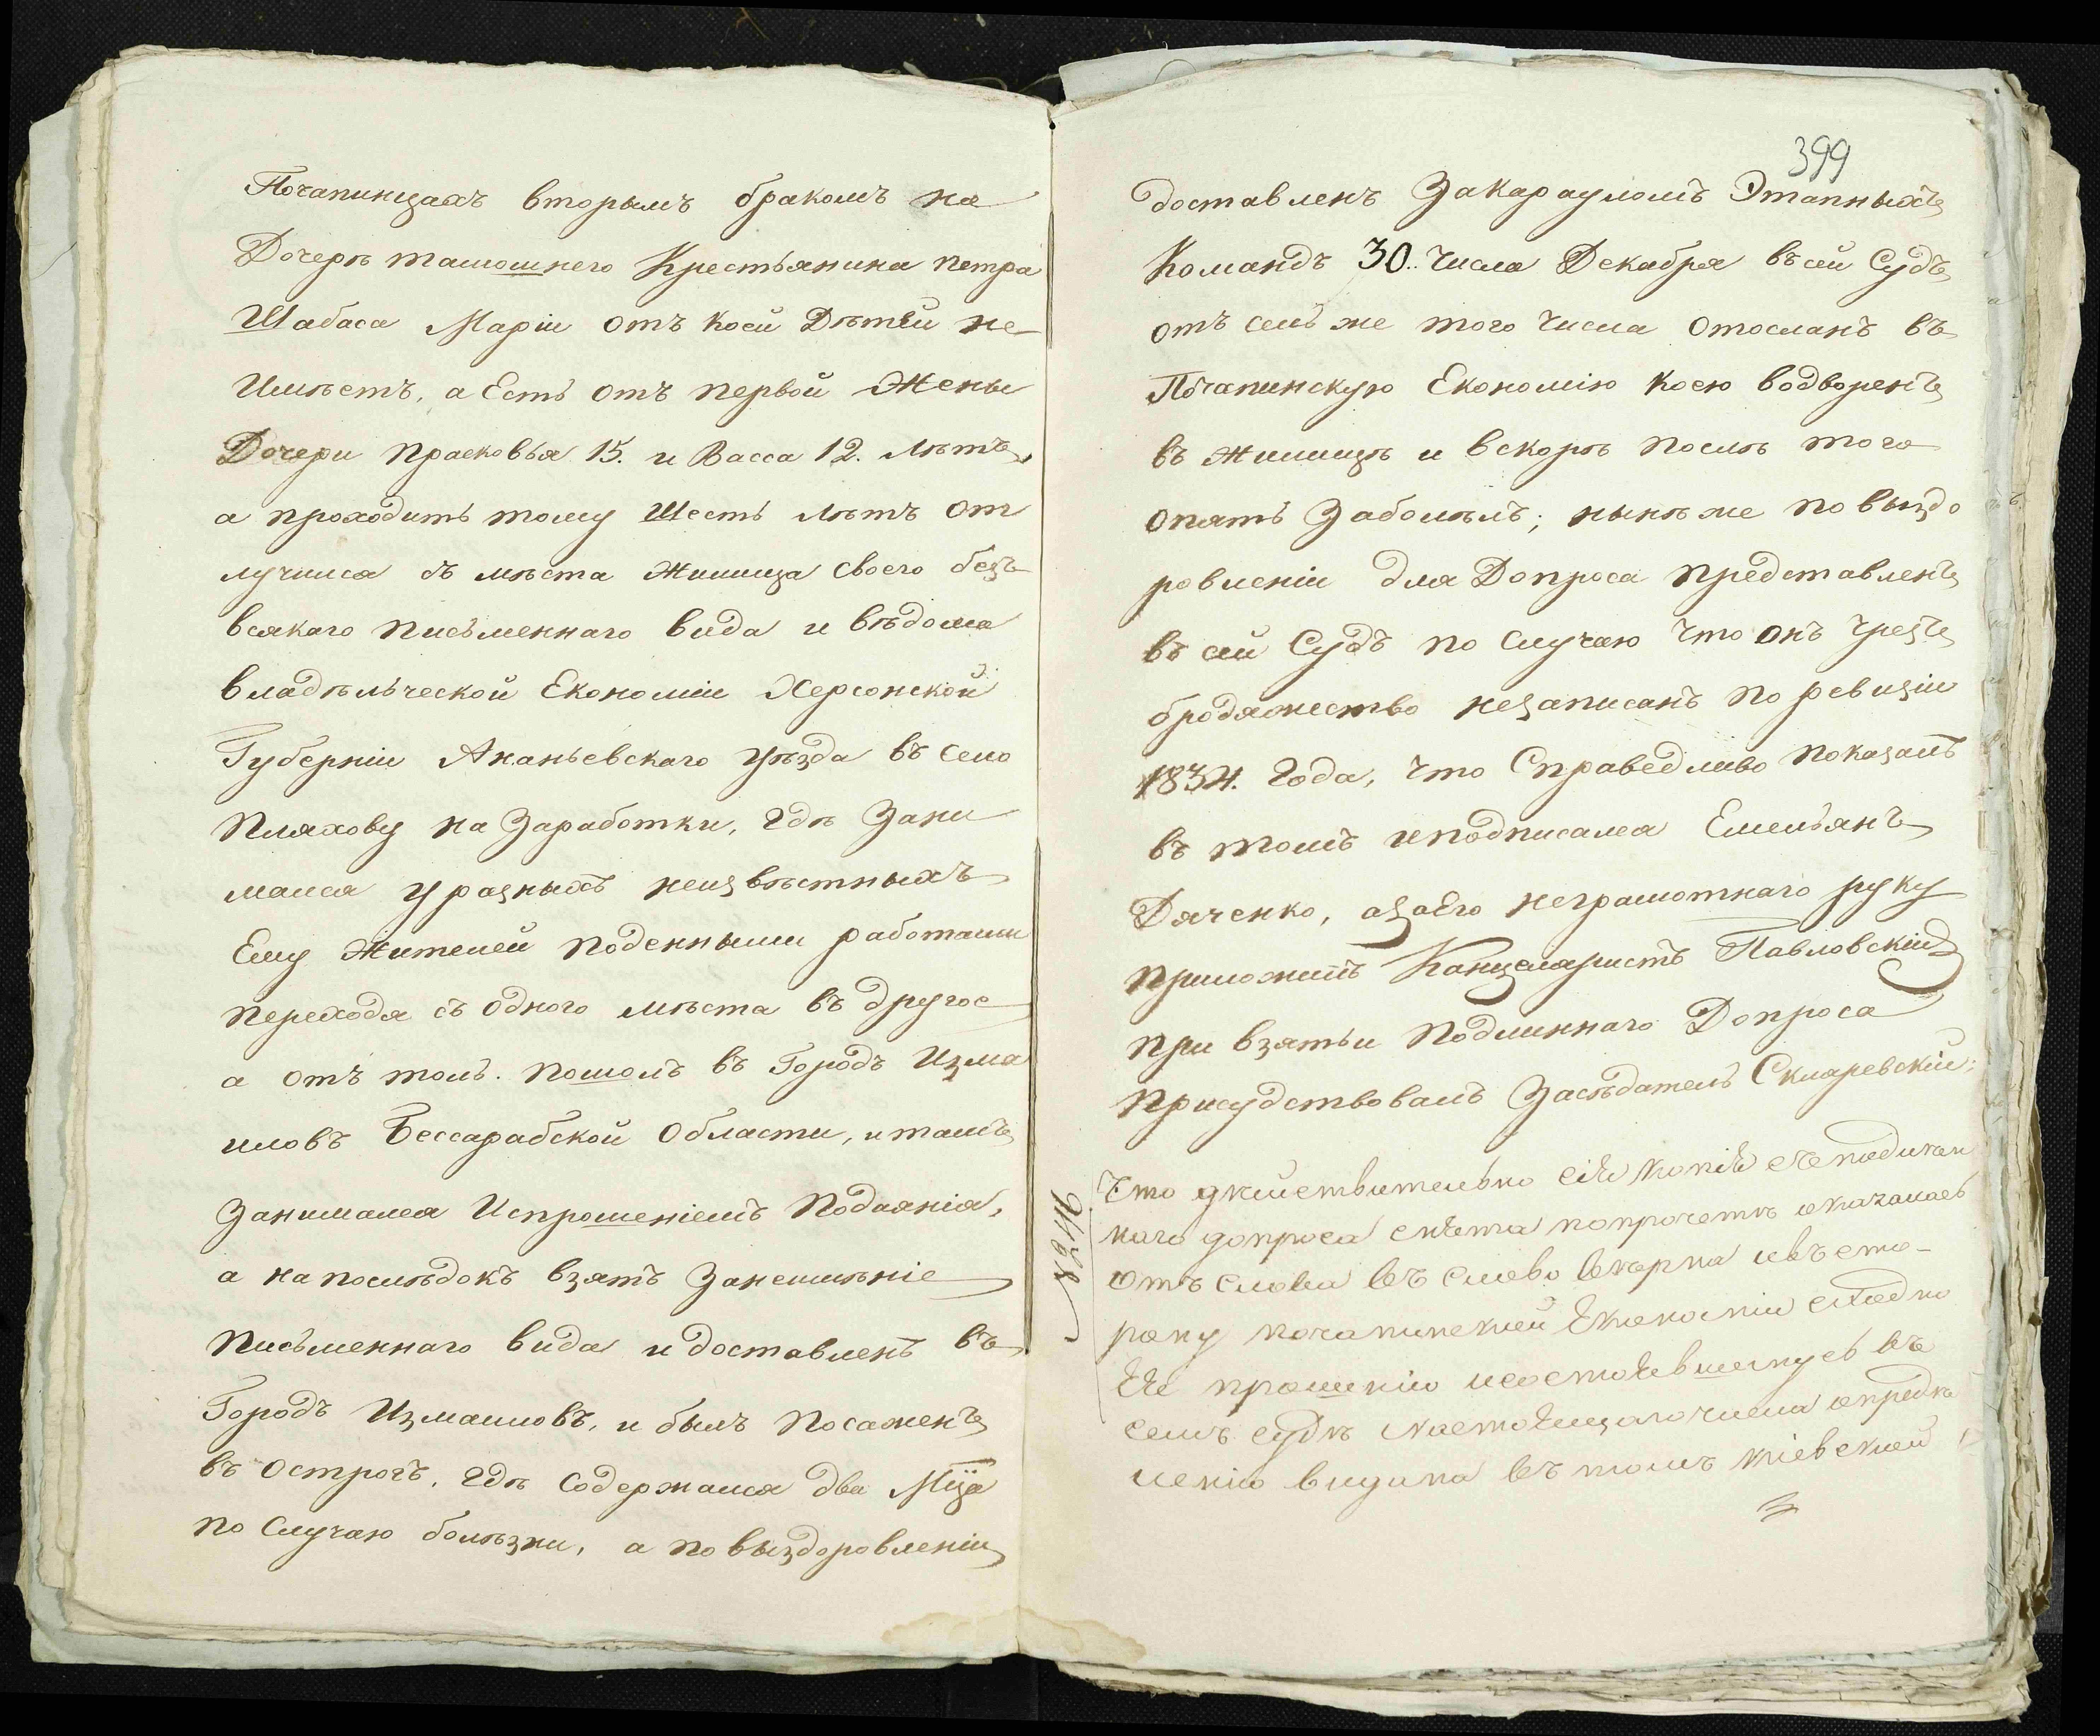 Почапинцахъ вторымъ бракомъ на
Дочерѣ тамошнего Крестьянина петра
Шабаса Маріи отъ коей Дѣтей не
Имѣетъ, а Есть отъ первой Жены
Дочери Прасковья 15. и Васса 12. лѣтъ,
а проходитъ тому Шесть лѣтъ от
лучился съ мѣста Жилища своего безъ
всякаго письменнаго вида и вѣдома
владѣльческой Економіи Херсонской
Губерніи Ананьевскаго уѣзда въ село
Пляхову на Заработки, гдѣ Зани
мался у разныхъ неизвѣстныхъ
Ему Жителей поденными работами
переходя съ одного мѣста въ другое
а отъ толь. пошолъ въ Городъ Изма
иловъ Бессарабской Области, и тамъ
Занимался Испрошеніемъ Подаянія,
а напослѣдокъ взятъ Занеимѣніе
письменнаго вида и доставленъ въ
Городъ Измаиловъ, и былъ посаженъ
въ острогъ, гдѣ содержался два Мца
по Случаю болѣзни, а по выздоровленіи
399
доставленъ Закарауломъ Этапныхъ
Командъ 30.. Числа Декабря въ сей Судъ,
отъ семъ же того Числа отосланъ въ
Почапинскую Економію коею водворенъ
въ жилищѣ и вскорѣ послѣ того
опять Заболѣлъ; нынѣ же по выздо
ровленіи для Допроса представленъ
въ сей Судъ по Случаю Что онъ Чрезъ
бродяжество незаписанъ по ревизіи
1834. Года, Что Справедливо показалъ
въ томъ иподписался Емельянъ
Дяченко, азаЕго неграмотнаго руку
приложилъ Канцеляристъ Павловскій
при взятьи Подлиннаго Допроса
Присудствовалъ Засѣдатель Скляревскій;
Что дѣйствительно сія копія съ подлин
наго допроса снята попрочетѣ оказалась
отъ слова въ слово вѣрна ивъ сто-
рону почапинской Економіи
Ея прошенію исостоявшемусь въ
семъ судѣ настоящагочисла опредѣ
ленію видана въ томъ кіевской